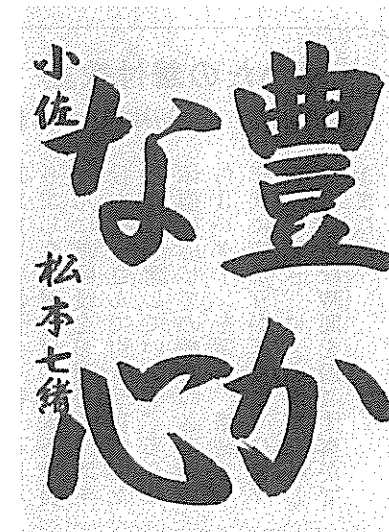 豊か
な心
小佐 松本七緒